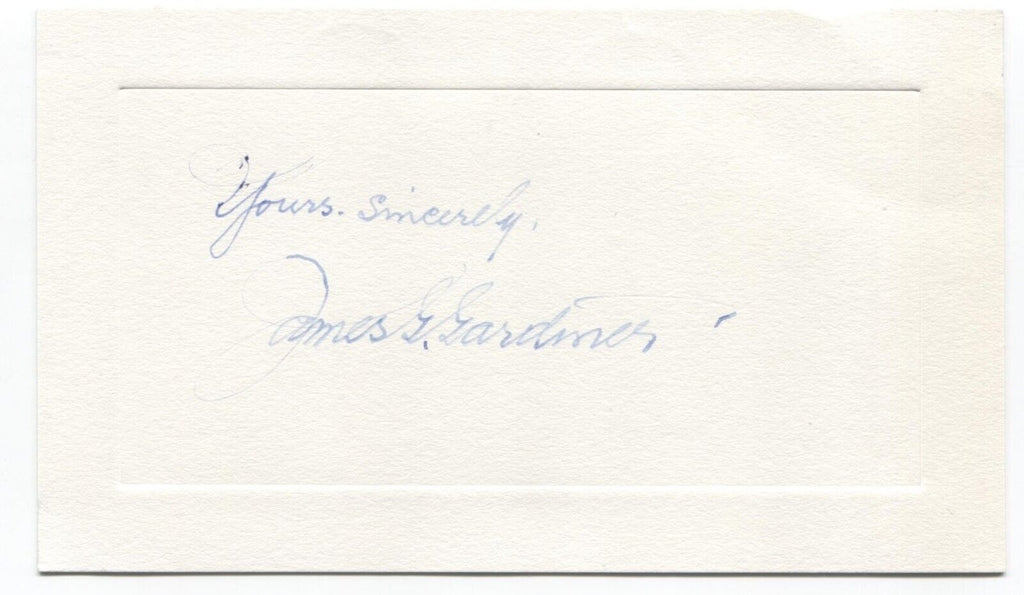 Yours. sincerely.
James G. Gardiner